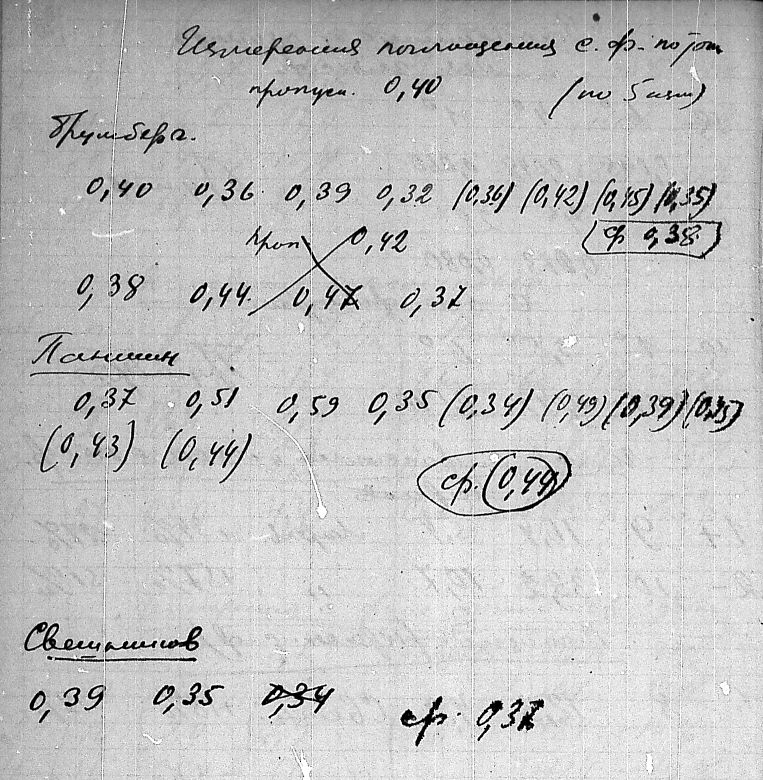 Измерения поглощения с. ф-
пропуск. 0,40 (по 5 изм)
Брумберг.
0,40 0,36 0,39 0,32 (0,36) (0,42) (0,45) (0,35)
Проп 0,42 ср 0,38
0,38 0,44 0,47 0,37
Паншин
0,37 0,51 0,59 0,35 (0,34) (0,49) (0,39) (0,45)
(0,43) (0,44) ср. (0,44)
Свешников
0,39 0,35 0,34 ср. 0,37